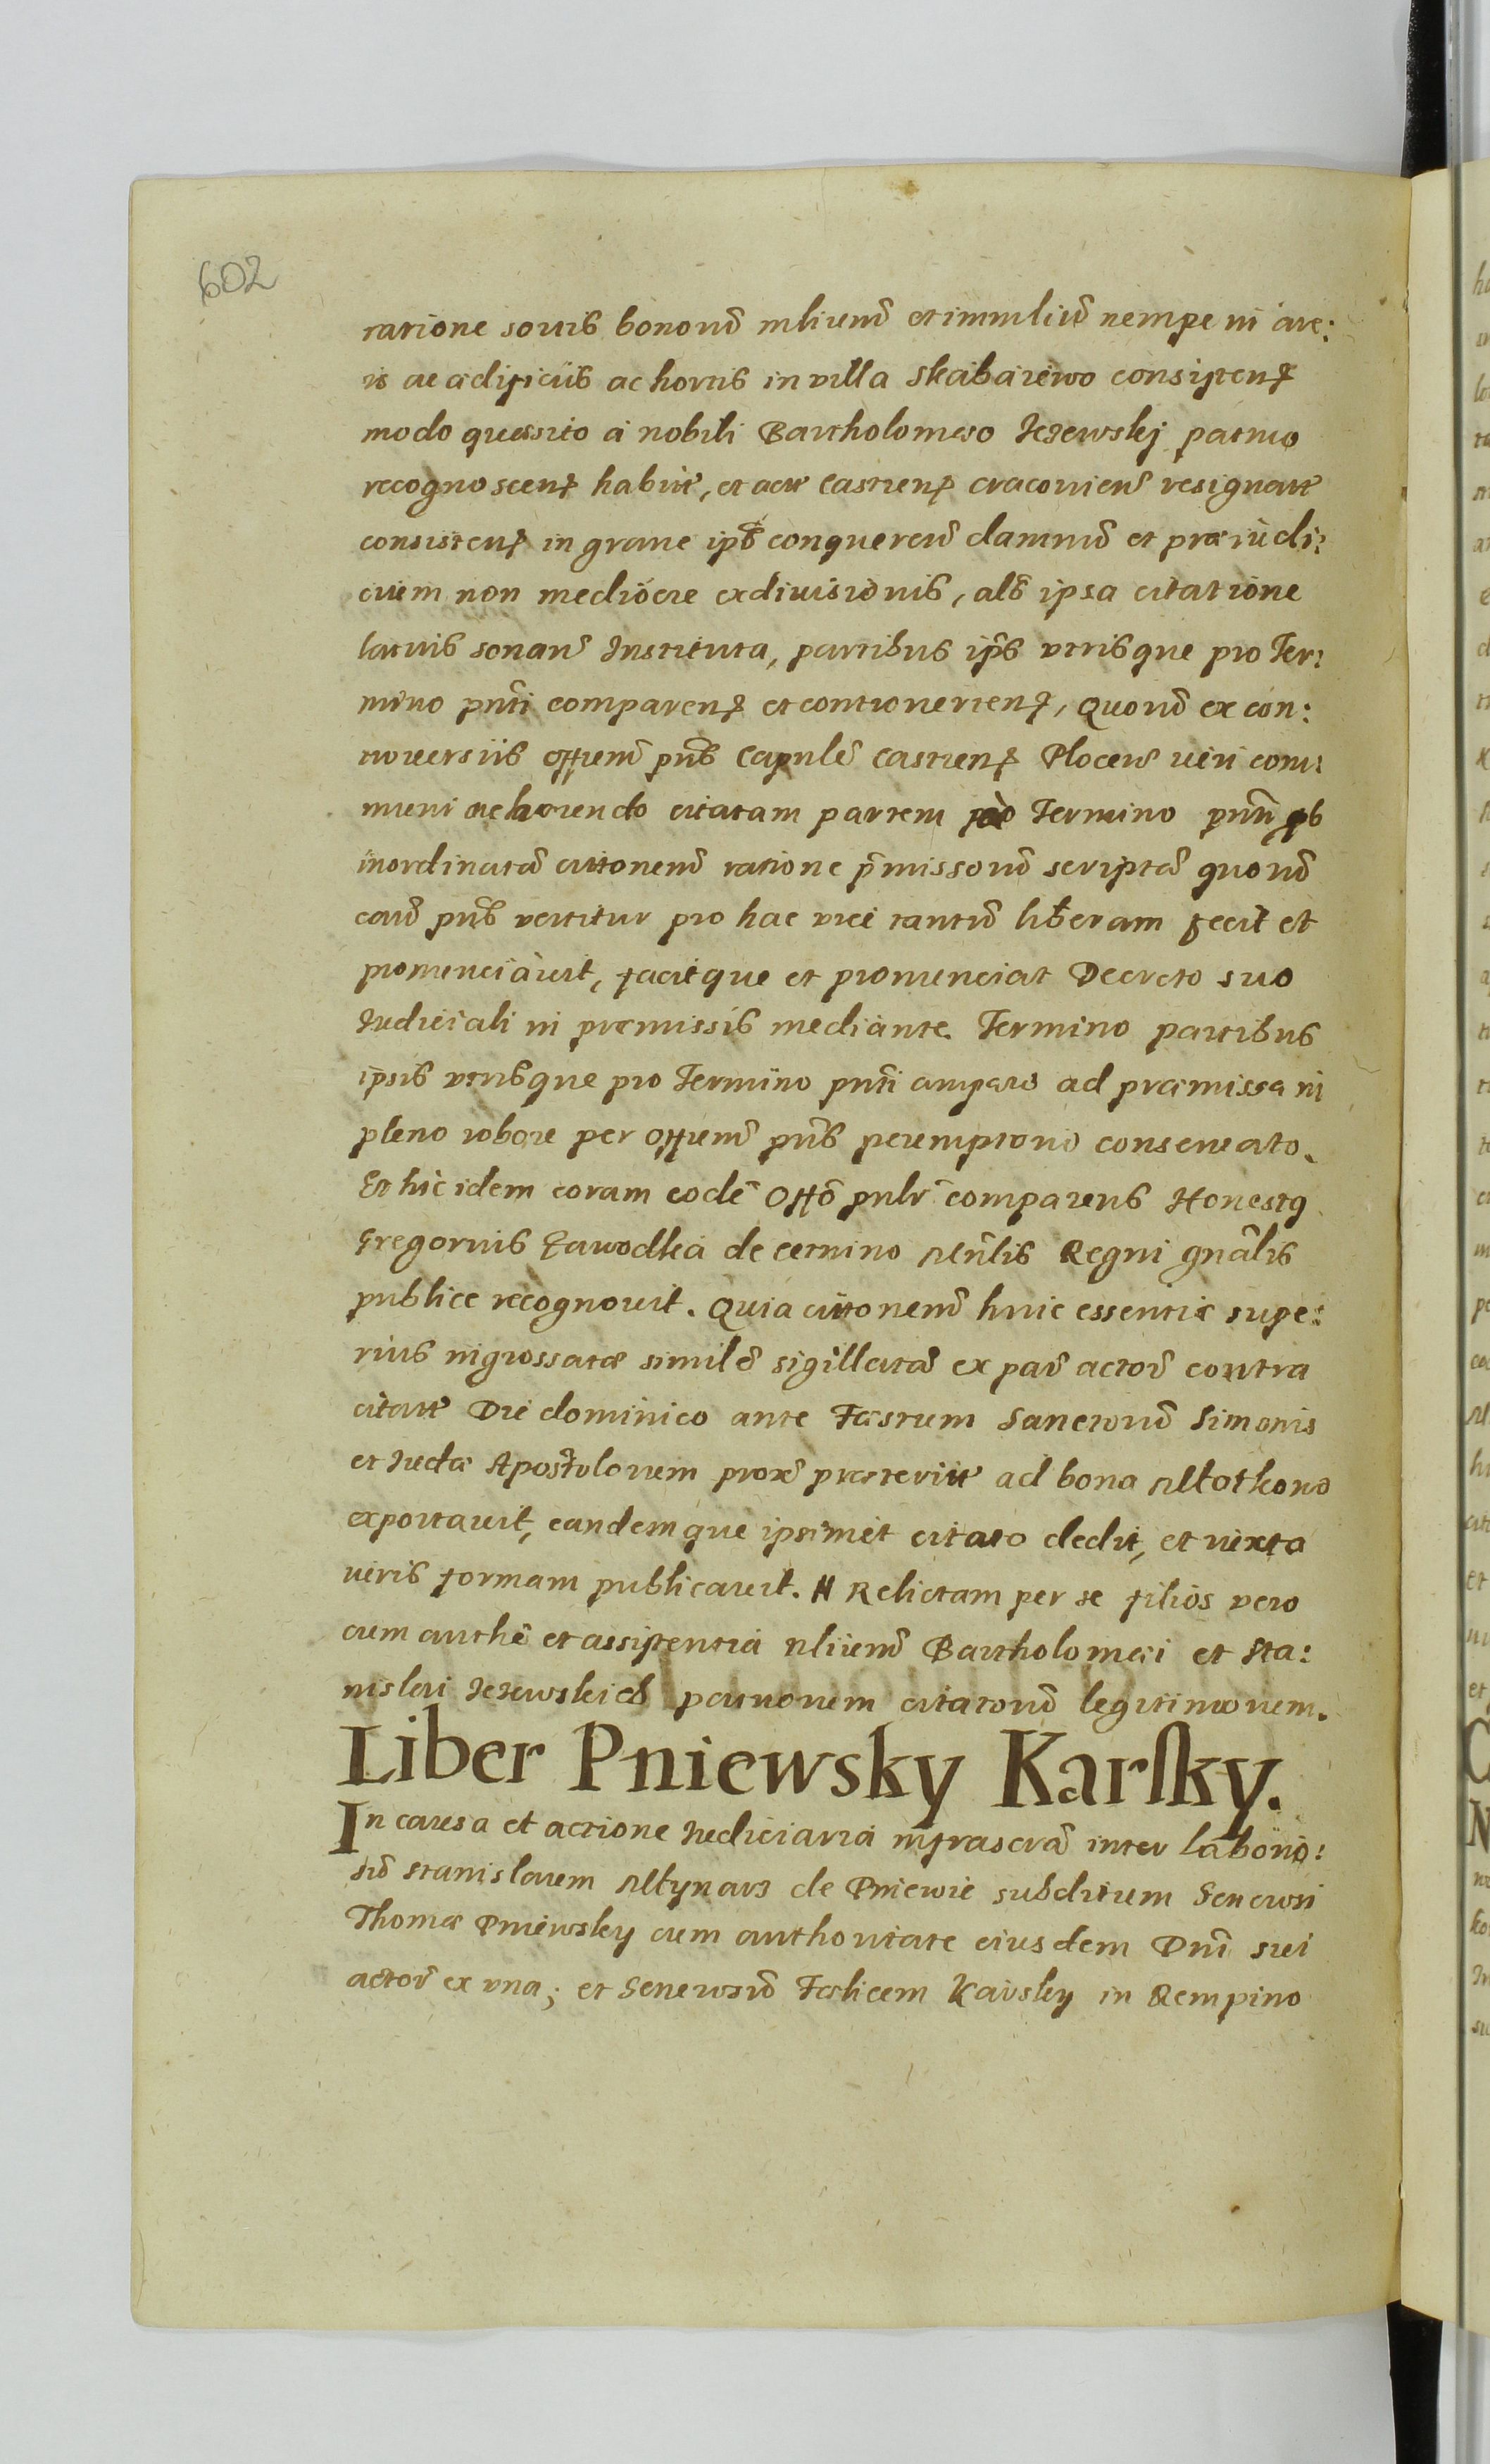 602
ratione sortis bonorū mliumʳ et immliū nempe in are:
is aedificiis ac hortis in villa Skabaiewo consisten̄
modo quaesito a nobili Bartholomeo Jezewskj patruo
recognoscen̄ habit̄, et actt̄ Castren̄ cracovien̄ resignatt̄
consisten̄ in grave ip̄s conqueren̄ damnū et praeiudi:
cium non mediocre exdivisionis, als̄ ipsa citatione
latius sonan̄ Instituta, partibus ip̄s utrisque pro Ter:
mino pn̄ti comparen̄ et controverten̄, Quorū ex con:
troversiis offium̄ pn̄s Capnle̅ Castren̄ Plocen̄ Juri com:
muni adhaerendo citatam partem pro Termino pn̄ti ob
inordinatā citt̄onem̄ ratione p̄missorū scriptā quorū
caū pn̄s vertitur pro hac vice tantū liberam fecit et
pronunciavit, facitque et pronunciat Decreto suo
Judiciali in praemissis mediante. Termino partibus
ipsis utrisque pro Termino pn̄ti comparēn ad praemissa in
pleno robore per offium̄ pn̄s peremptorie conservato.
Et hic idem coram eodē Offō pn̄tr̄ comparens Honestꝯ
Gregorius Zawodka de Cetnino Mn̄lis Regni gnālis
publice recognovit. Quia citt̄onem̄ huic essentiae supe:
rius ingrossatae similē sigillatā ex par̄ actor̄ contra
citatt̄ Die dominico ante Faestum Sanctorū Simonis
et Judae Apostolorum prox̄ praeteriit̄ ad bona Mlotkono
exportavit, eandemque ipsimet citato dedit, et iuxta
iuris formam publicavit. N Relictam per se filios vero
cum authē et assistentia nlium̄ Bartholomaei et Sta:
nislai Jezewskich patruorum citatorū legitimorum.
Liber Pniewsky Karsky.
In causa et actione Judiciaria infrascrā inter laborio:
sū Stanislaum Mlynarz de Pniewie subditum Generosi
Thomae Pniewsky cum authoritate eiusdem Dnī sui
actor̄ ex una; et Generosū Faelicem Karsky in Rempino